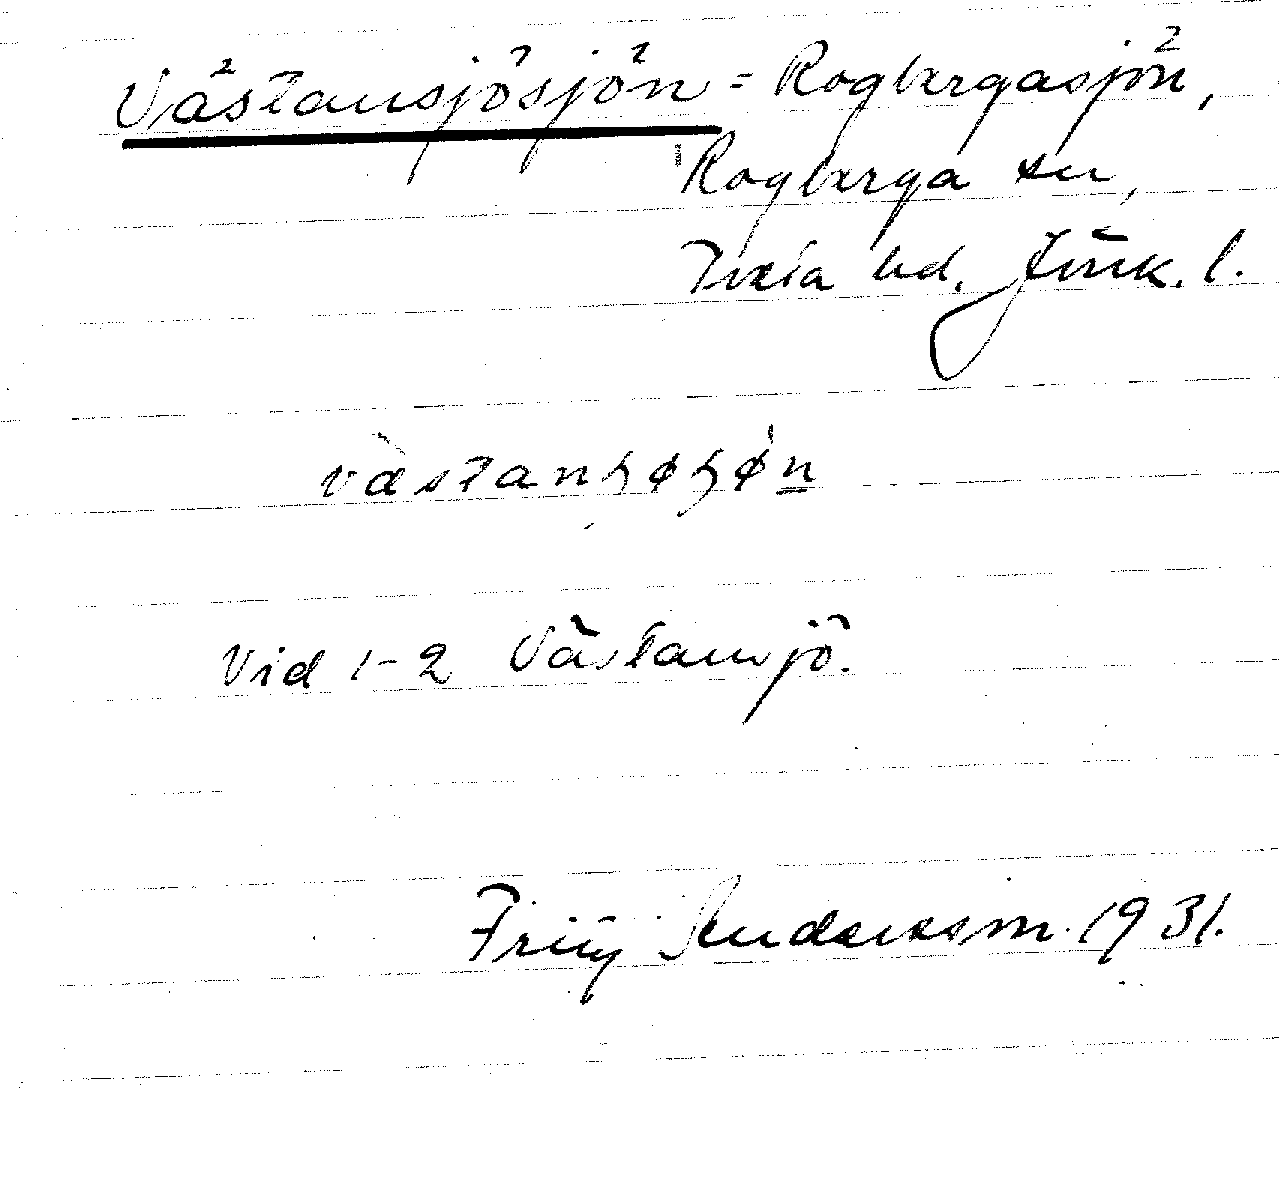 Västansjösjön = Rogbergasjön,
Rogberga sn,
Tveta hd. Jönk. l.
væstanɧøɧøn
Vid 1-2 Västansjö.
Andersson. 1931.